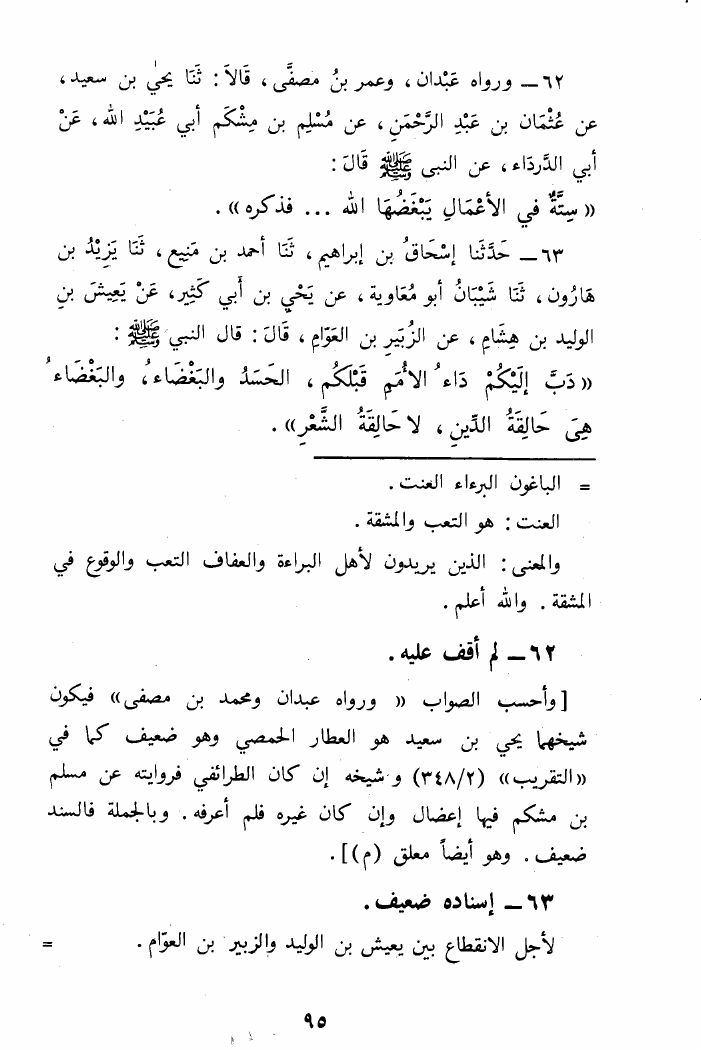 ٦٢ــ ورواه عَبْدان، وعمر بنُ مصفَّى، قَالاَ: ثَنَا يحيٰ بن سعيد،
عن عُثْمَان بن عَبْدِ الرَّحْمَنِ، عن مُسْلِم بن مِشْكَم أبي عُبَيْدِ الله، عَنْ
أبي الدَّردَاء، عن النبى ﷺ قَالَ:
«سِتَّةٌ في الأعْمَالِ يَبْغَضُهَا الله ... فذكره».
٦٣ــ حَدَّثَنا إسْحَاقُ بن إبراهيم، ثَنَا أحمد بن مَنِيع، ثَنَا يَزِيْدُ بن
هَارُون، ثَنَا شَيْبَانُ أبو مُعَاوية، عن يَحْيِ بن أبي كَثِير، عَنْ يَعِيشَ بنِ
الوليد بن هِشَامٍ، عن الزُبَيرِ بن العَوّامِ، قَالَ: قال النبي ﷺ:
«دَبَّ إلَيْكُمْ دَاءُ الأُمَمِ قَبْلَكُم، الحَسَدُ والبَغْضَاءُ، والبَغْضَاءُ
هِىَ حَالِقَةُ الدِّينِ، لا حَالِقَةُ الشَّعْرِ».
= الباغون البرءاء العنت.
العنت: هو التعب والمشقة.
والمعنى: الذين يريدون لأهل البراءة والعفاف التعب والوقوع في
المشقة. والله أعلم.
٦٢ــ لم أقف عليه.
[وأحسب الصواب «ورواه عبدان ومحمد بن مصفى» فيكون
شيخهما يحي بن سعيد هو العطار الحمصي وهو ضعيف كما في
«التقريب» (٣٤٨/٢) وشيخه إن كان الطرائفي فروايته عن مسلم
بن مشكم فيها إعضال وإن كان غيره فلم أعرفه. وبالجملة فالسند
ضعيف. وهو أيضاً معلق (م)].
٦٣ــ إسناده ضعيف.
لأجل الانقطاع بين يعيش بن الوليد والزبير بن العوّام. =
٩٥